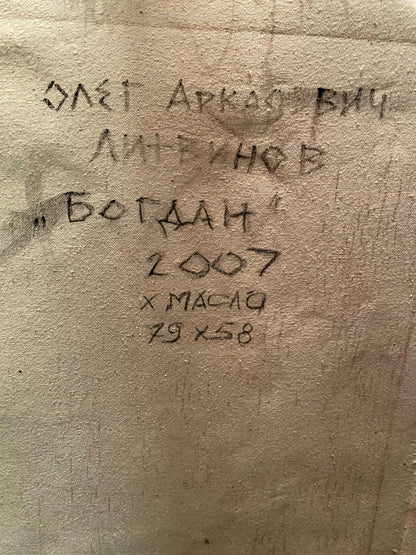 ОЛЕГ АРКАДЕВИЧ
ЛИТВИНОВ
„БОГДАН“
2007
Х МАСЛО
79 Х 58